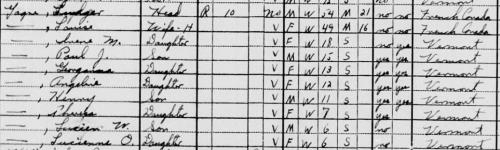 Head R 10 No M W 54 M 21 no no French Canada
—, Louise Wife-H V F W 49 M 16 no no French Canada
—, M. Daughter V F W 18 S no yes Vermont
—, Paul J. Son V M W 15 S yes yes Vermont
—, Georgianna Daughter V F W 13 S yes yes Vermont
—, Angeline Daughter V F W 12 S yes yes Vermont
—, Henry Son V M W 11 S yes yes Vermont
—, Daughter V F W 7 S yes Vermont
—, Lucien W. Son V M W 6 S no Vermont
—, Lucienne O. Daughter V F W 6 S no Vermont